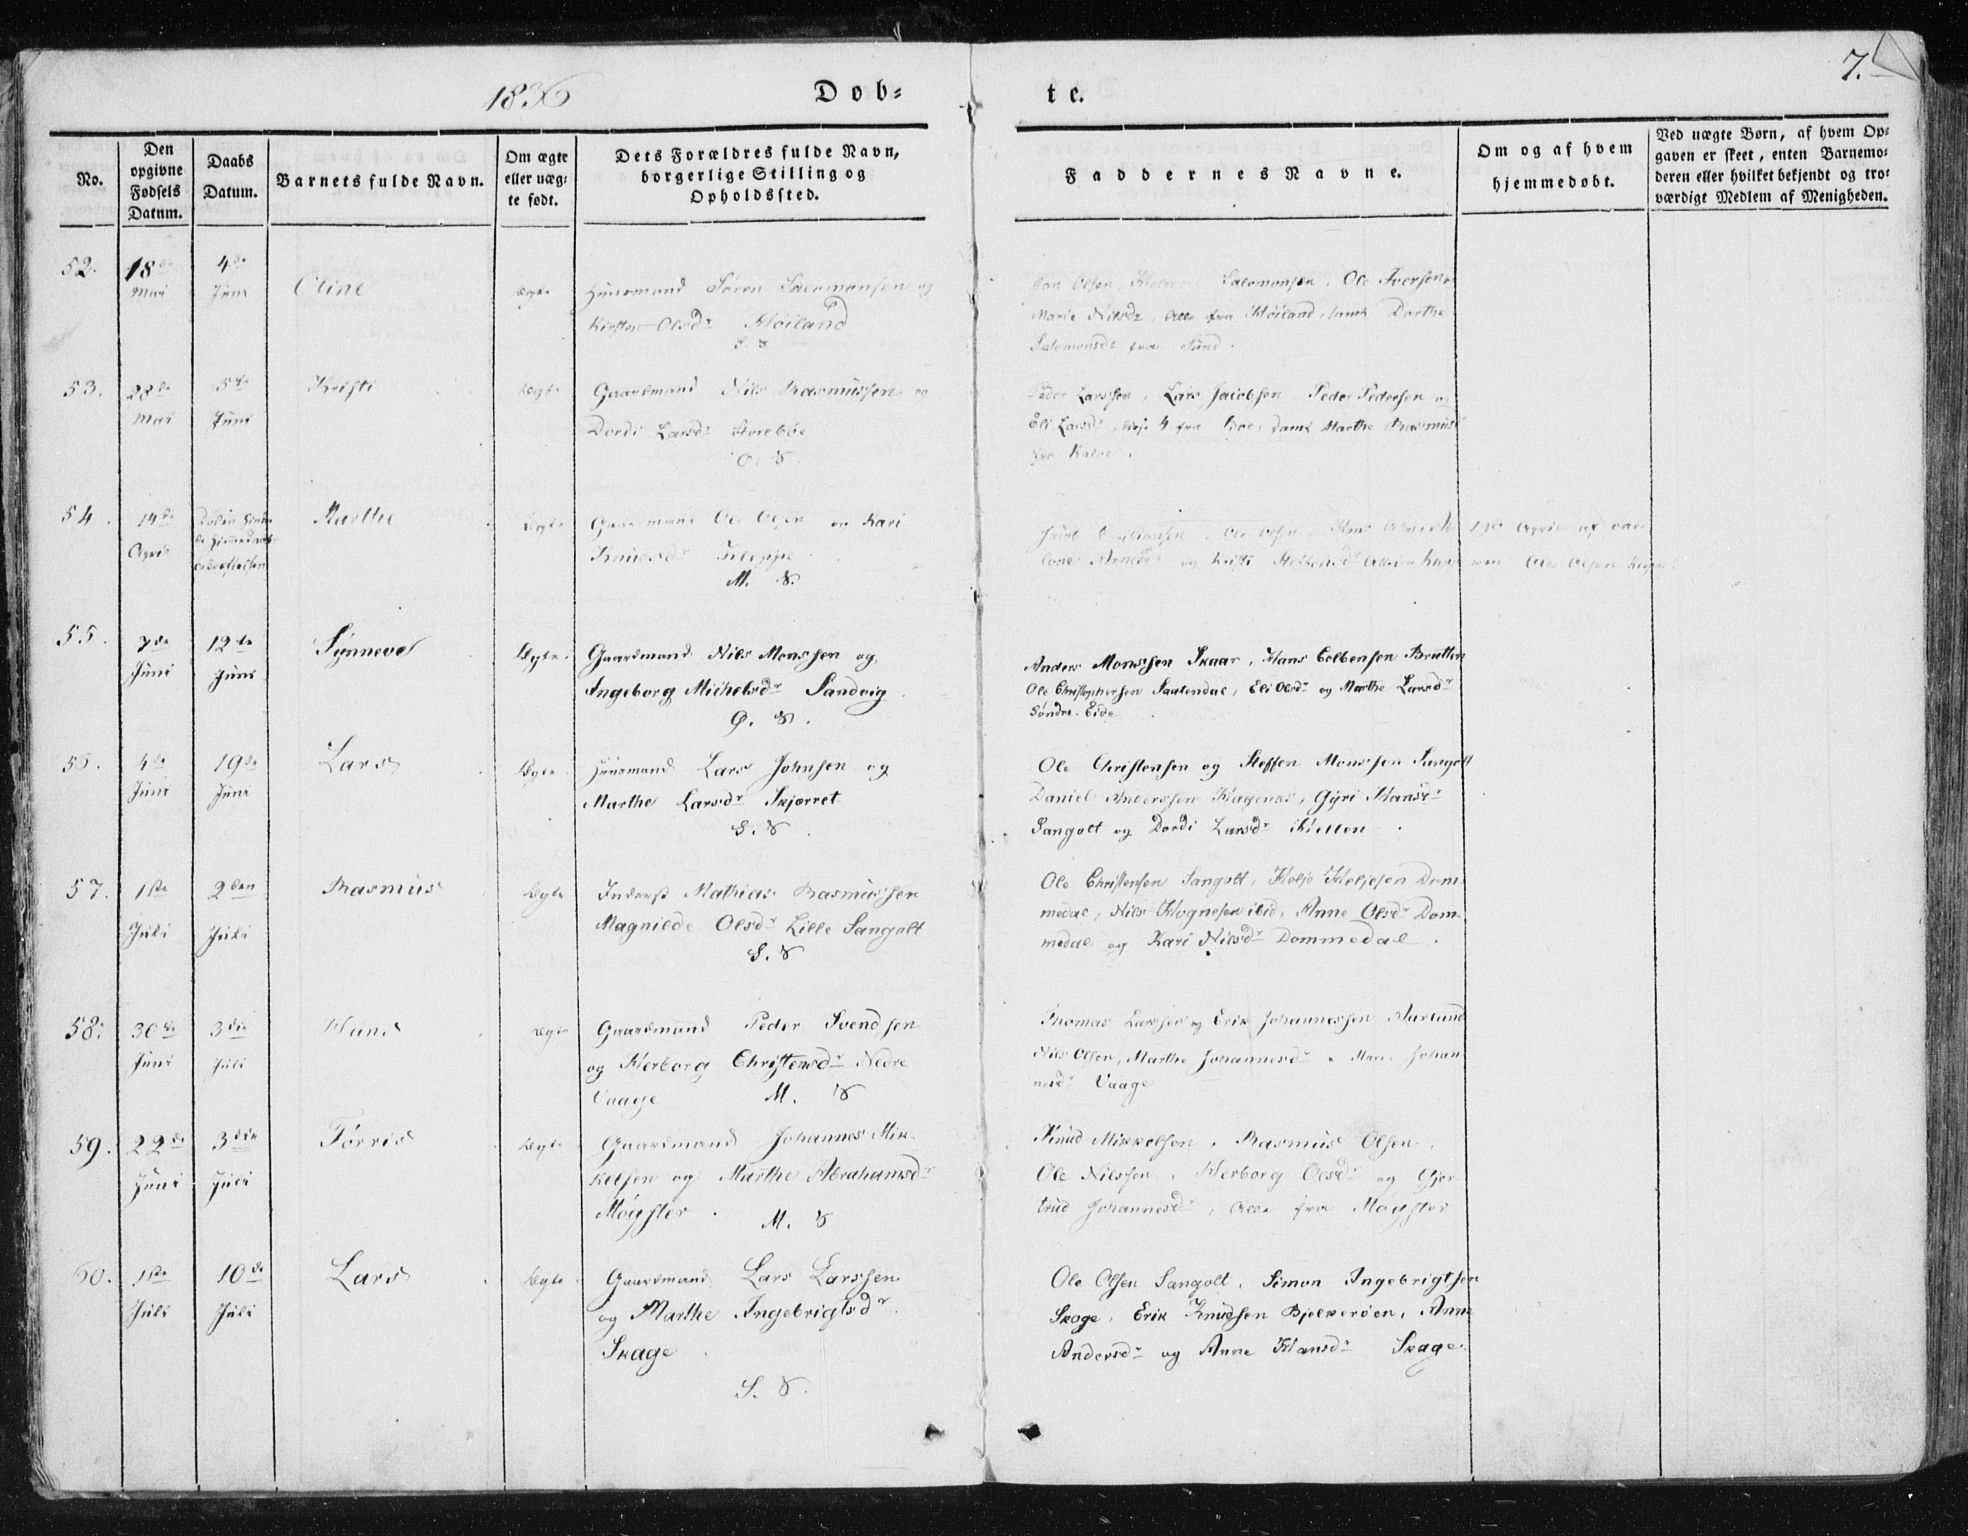 1836
Døb-
te.
7.
No.
Den opgivne Fødsels Datum.
Daabs Datum.
Barnets fulde Navn.
Om ægte eller uæg-
te født.
Dets Forældres fulde Navn,
borgerlige Stilling og
Opholdssted.
Faddernes Navne.
Om og af hvem
hjemmedøbt.
Ved uægte Børn, af hvem Op-
gaven er skeet, enten Barnemo-
deren eller hvilket bekjendt og tro-
værdigt Medlem af Menigheden.
52. 18de Mai 4de Juni Oline Ægte
Huusmand Søren Salomonsen og
Kirsten Olsdr Høiland
S. S
Jon Olsen, Salomonsen, Ole Iversen
Marie Nilsdr, alle fra Høiland, samt Dorthe
Salomonsdr fra Sund.
53. 28de Mai 5te Juni Kristi Ægte
Gaardmand Nils Rasmussen og
Dordi Larsdr Storebøe
Ø. S.
Peder Larssen, Lars Jacobsen, Peder Pedersen og
Eli Larsdr, disse 4 fra Bøe, samt Marthe Rasmusd
fra
54. 14de April Marthe Ægte
Gaardmand Ole Olsen og Kari
Knudsdr Kleppe
M. S.
Ole Olsen, Hans
Arnesdr og Kristi
April af
Ole Olsen Kleppe
55. 7de Juni 12te Juni Synneve Ægte.
Gaardmand Nils Monssen og
Ingeborg Michelsdr Sandvig.
Ø. S.
Anders Monssen Skaar, Hans Colbensen Bratten
Ole Christophersen Saalendal, Eli Olsdr og Marthe Larsdr
Søndre Eide
56. 4de Juni 19de Juni Lars Ægte
Huusmand Lars Johnsen og
Marthe Larsdr Skjørret
S. S.
Ole Christensen og Steffen Monssen Sangolt
Daniel Anderssen Hagenæs, Gyri Hansdr
Sangolt og Dordi Larsdr
57. 1ste Juli 2den Juli Rasmus Ægte
Inderst Mathias Rasmussen
Magnilde Olsdr Lille Sangolt
S. S
Ole Christensen Sangolt, Helje Heljesen Dom-
medal, Nils Hognesen ibid, Anne Olsdr Dom-
medal og Kari Nilsdr Dommedal.
58. 30de Juni 3die Juli Hans Ægte
Gaardmand Peder Svendsen
og Herborg Christensdr Nedre
Vaage M. S
Thomas Larssen og Erik Johannessen
Nils Olsen, Marthe Johannesdr Johan-
nesdr Vaage
59. 22de Juni 3die Juli Tørris Ægte
Gaardmand Johannes Mik-
kelsen og Marthe Abrahamsdr
Møgster. M. S
Knud Mikkelsen, Rasmus Olsen,
Ole Nilssen, Herborg Olsdr og Gjer-
trud Johannesdr, alle fra Møgster
60. 1ste Juli 10de Juli Lars Ægte
Gaardmand Lars Larssen
og Marthe Ingebrigtsdr.
Skage.
S. S.
Ole Olsen Sangolt, Simon Ingebrigtsen
Skage, Erik Knudsen Bjelkerøen, Anne
Andersdr og Anne Hansdr Skage.